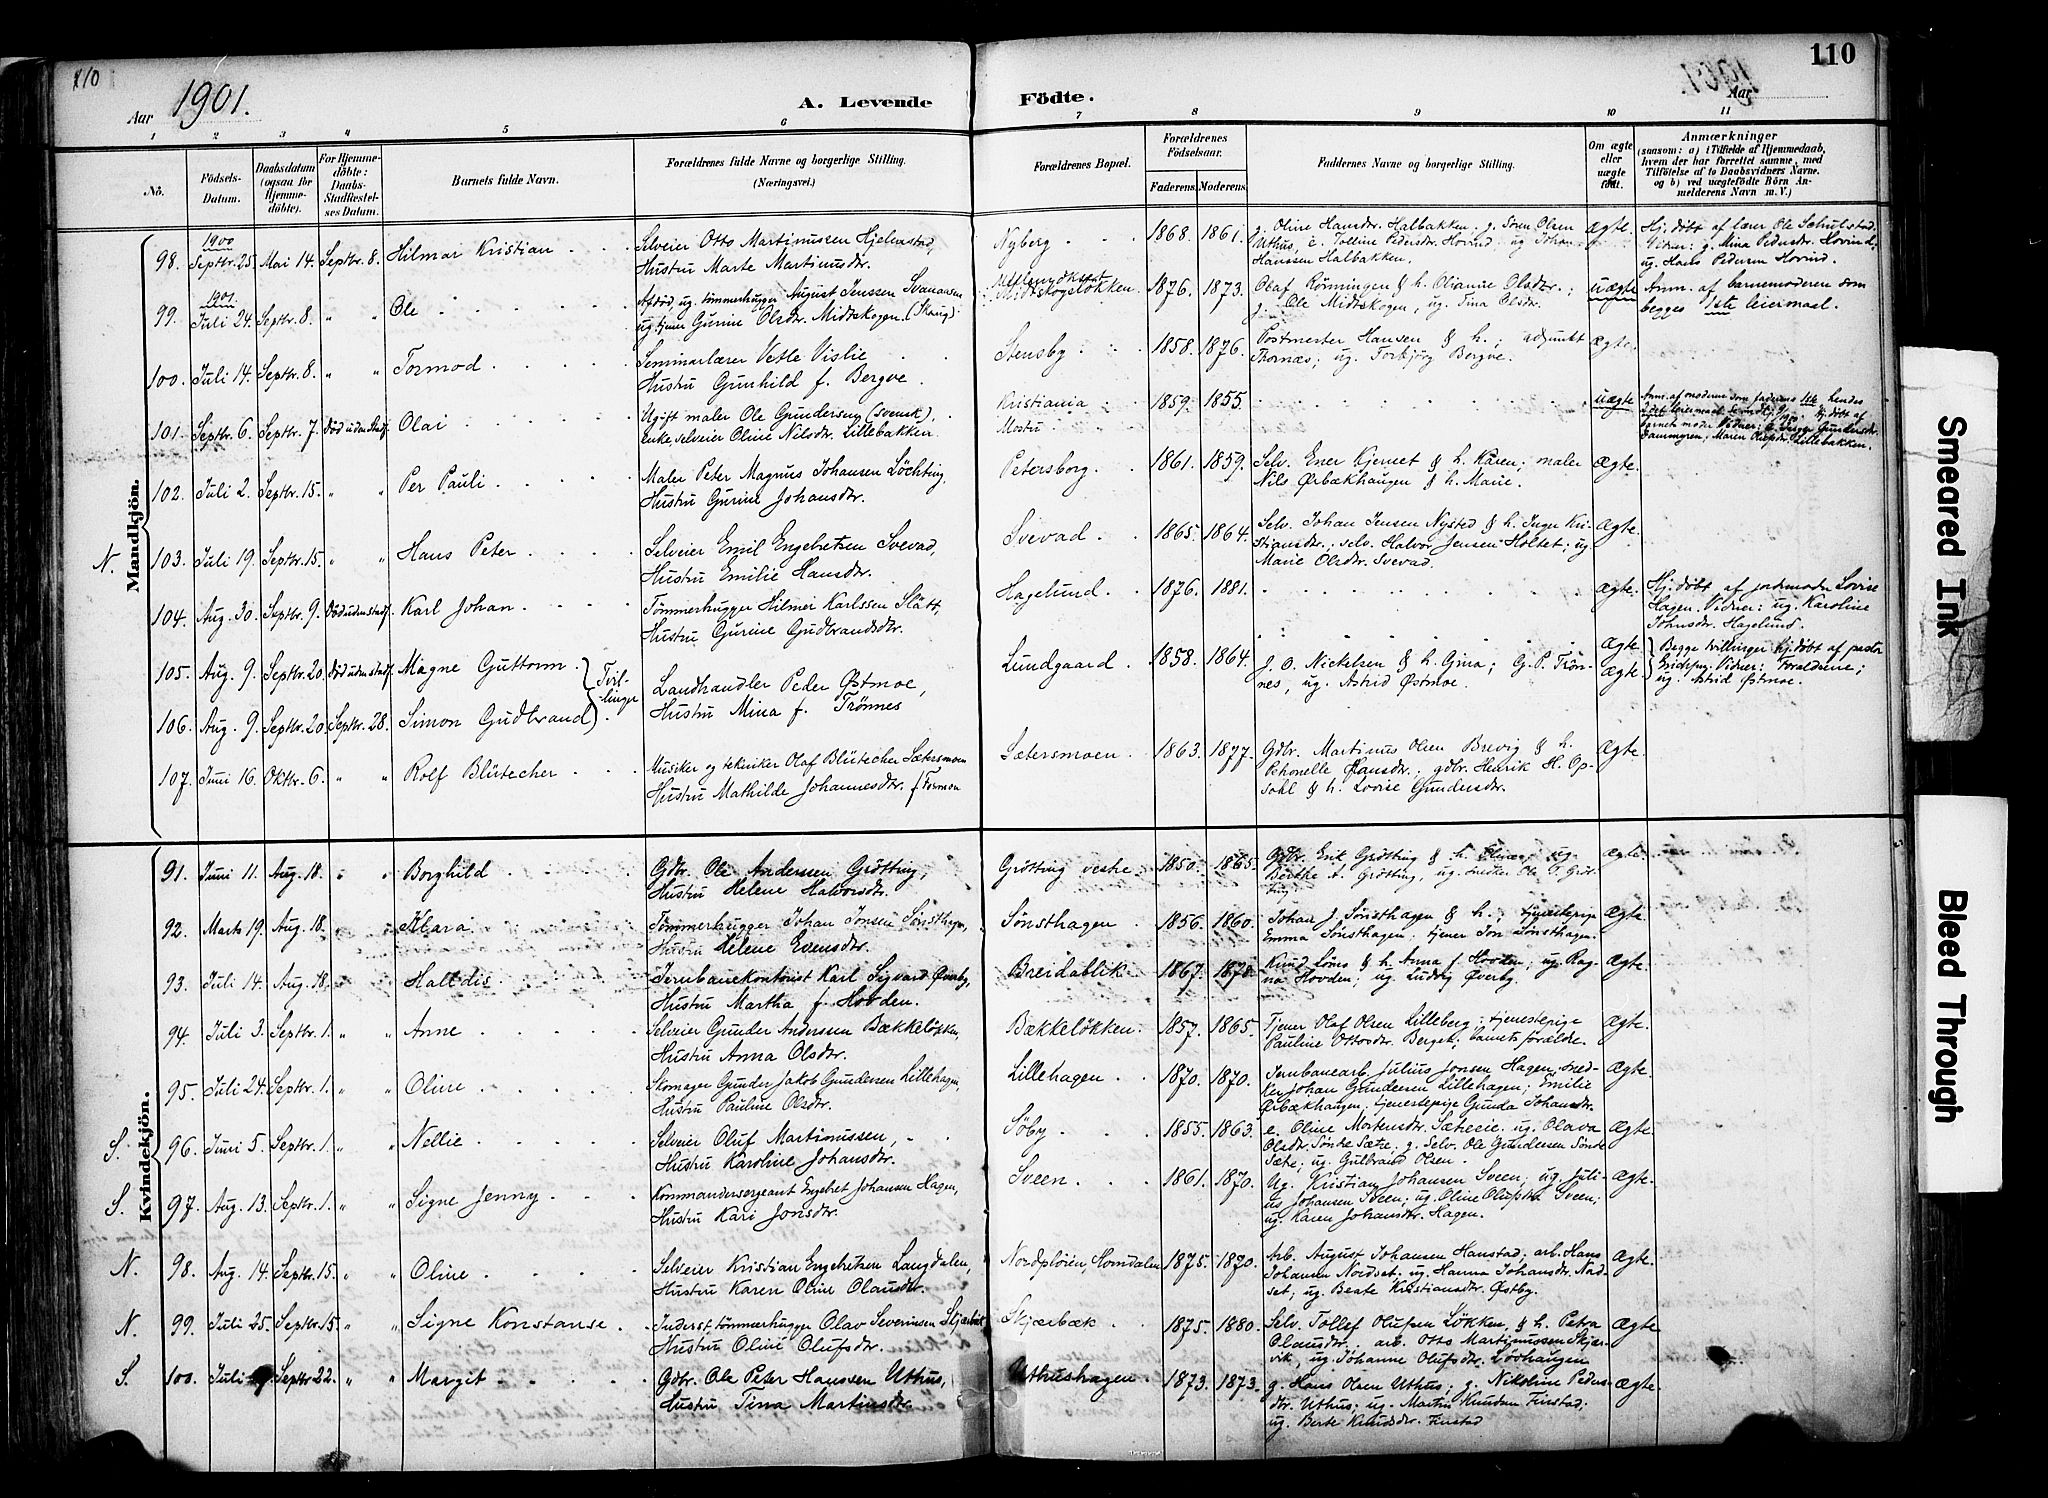 110
Aar 1901.
A. Levende Födte.
Aar
110
1 2 3 4 5 6 7 8 9 10 11
No.
Födsels-Datum.
Daabsdatum (ogsaa for Hjemmedöbte).
For Hjemmedöbte: Daabs-Stadfæstelses Datum.
Barnets fulde Navn.
Forældrenes fulde Navne og borgerlige Stilling. (Næringsvei.)
Forældrenes Bopæl.
Forældrenes Födselsaar.
Faderens. Moderens.
Faddernes Navne og borgerlige Stilling.
Om ægte eller uægte födt.
Anmærkninger
(saasom: a) i Tilfælde af Hjemmedaab, hvem der har forrettet samme, med Tilföielse af to Daabsvidners Navne. og b) ved uægtefödte Börn Anmelderens Navn m. V.)
Mandkjön.
98. 1900 Septbr. 25. Mai 14. Septbr. 8. Hilmar Kristian
Selveier Otto Martinussen Hjelmstad,
Hustru Marte Martinusdtr.
Nyberg 1868. 1861.
g. Oline Hansdtr. Halbakken; g. Sören Olsen
Uthus, e. Tolline Pedersdtr. Hovind; ug. Johan
Hanssen Halbakken.
Ægte.
Hj. döbt af lærer Ole Sæhulstad.
Vidner: g. Mina Pedersdtr. Hovind;
ug. Hans Pedersen Hovind.
99. 1901 Juli 24. Septbr. 8. " " Ole
Afdöd ug. tömmerhugger August Jenssen Svanaasen
ug. tjener Gurine Olsdtr. Midtskogen. (Skaug).
Midtskogslökken. 1876. 1873.
Olaf Rönningen & h. Oliane Olsdtr.;
g. Ole Midtskogen, ug. Tina Olsdtr.
uægte
Anm. af barnemoderen som
begges 1ste leiermaal.
100. Juli 14. Septbr. 8. " " Tormod
Seminarlærer Vetle Vislie
Hustru Gunhild f. Bergve.
Stensby 1858. 1876.
Postmester Hansen & h.; adjunkt
Thornæs; ug. Torbjörg Bergve.
Ægte.
101. Septbr. 6. Septbr. 7. Död uden stadf. Olai
Ugift maler Ole Gundersen (svensk),
enke selveier Oline Nilsdtr. Lillebakken.
Kristiania
Mostu 1859. 1855.
uægte
Anm. af moderen som faderens 1ste hendes
2det leiermaal. Hj. döbt af
barnets moder. Vidner: g. Inger Gundersdtr.
Dammgren, Maren Olsdtr. Lillebakken.
102. Juli 2. Septbr. 15. " " Per Pauli
Maler Peter Magnus Johansen Löchting
Hustru Gurine Johansdtr.
Petersborg. 1861. 1859.
Selv. Ener Kjernet & h. Karen; maler
Nils Ørbækhaugen & h. Marie.
Ægte.
N. 103. Juli 19. Septbr. 15. " " Hans Peter
Selveier Emil Engebretsen Svevad,
Hustru Emilie Hansdtr.
Svevad 1865. 1864.
Selv. Johan Jensen Nysted & h. Inger Kri-
stiansdtr.; selv. Halvor Jensen Holtet; ug.
Marie Olsdtr. Svevad.
Ægte.
104. Aug. 30. Septbr. 9. Död uden stadf. Karl Johan
Tömmerhugger Hilmer Karlssen Slått,
Hustru Gurine Gudbrandsdtr.
Hagelund 1876. 1881.
Ægte.
Hj. döbt af jordemoder Lovise
Hagen. Vidner: ug. Karoline
Johnsdtr. Hagelund.
105. Aug. 9. Septbr. 20. Död uden stadf. Magne Guttorm
106. Aug. 9. Septbr. 20. Septbr. 28. Simon Gudbrand
Tvillinger
Landhandler Peder Østmoe,
Hustru Mina f. Trönnes
Lundgaard 1858. 1864.
J. O. Nickelsen & h. Gina; G. P. Trön-
nes, ug. Astrid Østmoe.
Ægte.
Ægte.
Begge tvillinger hj. döbt af pastor
Vidner: Forældrene;
ug. Astrid Østmoe.
107. Juni 16. Oktbr. 6. " " Rolf Blütecher
Musiker og tekniker Olaf Blütecher Sætersmoen
Hustru Mathilde Johannesdtr. f. Tosmoen
Sætersmoen 1863. 1877.
Gdbr. Martinus Olsen Brevig & h.
Pehonelle Hansdtr.; gdbr. Henrik H. Op-
sahl & h. Lovise Gundersdtr.
Ægte.
Kvindekjön.
91. Juni 11. Aug. 18. " " Borghild
Gdbr. Ole Anderssen Gröttting,
Hustru Helene Halvorsdtr.
Grötting vestre 1850. 1865.
Gdbr. Erik Grötting & h. Oline; ug.
Berthe A. Grötting, ug. snedker Ole O. Gröt-
ting
Ægte.
92. Marts 19. Aug. 18. " " Klara
Tömmerhugger Johan Jonsen Sönsthagen,
Hustru Helene Evensdtr.
Sönsthagen 1856. 1860.
Johan J. Sönsthagen & h.; tjenestepige
Emma Sönsthagen; tjener Jon Sönsthagen.
Ægte.
93. Juli 14. Aug. 18. " " Halldis
Jernbanekontorist Karl Sigvard Øverby,
Hustru Martha f. Hovden.
Breidablik 1867. 1878.
Knud Löns & h. Anna f. Hovden; ug. Rag-
na Hovden; ug. Ludvig Øverby.
Ægte.
94. Juli 3. Septbr. 1. " " Anne
Selveier Gunder Anderssen Bækkelökken,
Hustru Anna Olsdtr.
Bækkelökken. 1857. 1865.
Tjener Olaf Olsen Lilleberg; tjenestepige
Pauline Ottosdtr. Berget; barnets forældre.
Ægte.
95. Juli 24. Septbr. 1. " " Oline
Skomager Gunder Jakob Gundersen Lillehagen,
Hustru Pauline Olsdtr.
Lillehagen 1870. 1870.
Jernbanearb. Julius Jonsen Hagen, sned-
ker Johan Gundersen Lillehagen; Emilie
Ørbækhaugen; tjenestepige Gunda Johansdtr.
Ægte.
S. 96. Juni 5. Septbr. 1. " " Nellie
Selveier Oluf Martinussen,
Hustru Karoline Johansdtr.
Söby 1855. 1863.
e. Oline Mortensdtr. Sæterie. ug. Olava
Olsdtr. Sönke Sæte; g. Selv. Ole Gundersen Sönke
Sæte; ug. Gulbrand Olsen.
Ægte.
S. 97. Aug. 13. Septbr. 1. " " Signe Jenny
Kommandersergeant Engebret Johansen Hagen,
Hustru Kari Jonsdtr.
Sveen 1861. 1870.
Ug. Kristian Johansen Sveen, ug. Juli-
us Johansen Sveen; ug. Oline Olufsdtr. Sveen;
ug. Karen Johansdtr. Hagen.
Ægte.
N. 98. Aug. 14. Septbr. 15. " " Oline
Selveier Kristian Engebretsen Langdalen,
Hustru Karen Oline Olausdtr.
Nordpløien, Horndalen 1875. 1870.
Arb. August Johansen Hanstad; arb. Hans
Johansen Nordset; ug. Hanna Johansdtr. Nord-
set; ug. Beate Kristiansdtr. Østby.
Ægte.
N. 99. Juli 25. Septbr. 15. " " Signe Konstanse
Inderst, tömmerhugger Olav Severinsen Skjærbæk
Hustru Oline Olufsdtr.
Skjærbæk 1875. 1880.
Selv. Tollef Olufsen Lökken, & h. Petra
Olausdtr., arb. Otto Martinussen Skjær-
vik, ug. Johanne Olufsdtr. Lövhaugen
Ægte
S. 100. Juli Septbr. 22. " " Margit
Gdbr. Ole Peter Hanssen Uthus,
Hustru Tina Martinsdtr.
Uthushagen 1873. 1873.
g. Hans Olsen Uthus; g. Nikoline Peders-
dtr. Uthus; ug. Martin Knudsen Finstad;
ug. Berte Knudsdtr. Finstad
Ægte.
Smeared Ink
Bleed Through